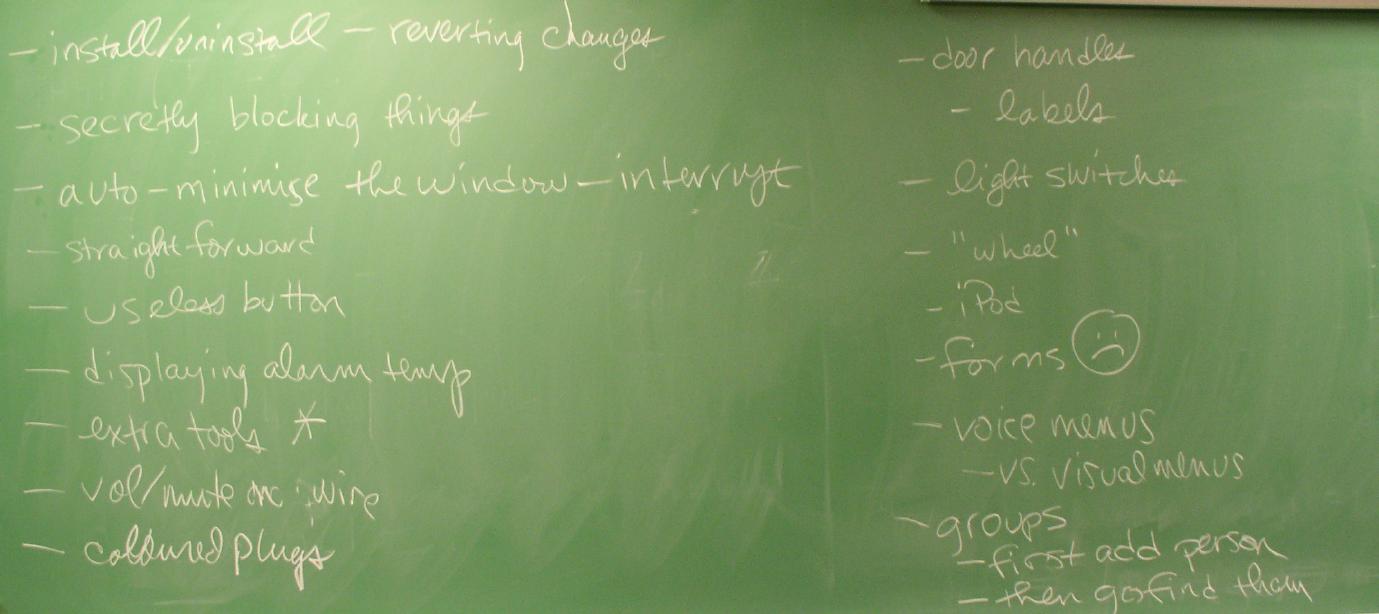 - install/uninstall - reverting changes
- secretly blocking things
- auto-minimise the window - interrupt
- straight forward
- useless button
- displaying alarm temp
- extra tools *
- vol/mute on wire
- coloured plugs
- door handles
- labels
- light switches
- "wheel"
- iPod
- forms
- voice menus
- vs. visual menus
- groups
- first add person
- then go find them